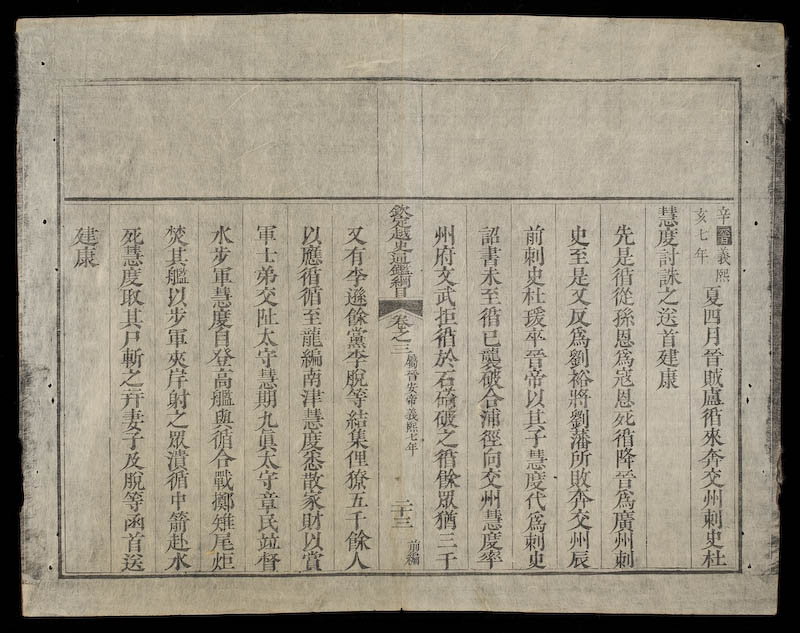 辛亥 晉義熙七年 夏四月晉賊盧循來奔交州刺史杜
慧度討誅之送首建康
先是循從孫恩爲寇恩死循降晉爲廣州刺
史至是又反爲劉裕將劉藩所敗奔交州辰
前刺史杜瑗卒晉帝以其子慧度代爲刺史
詔書未至循已襲破合浦徑向交州慧度率
州府文武拒循於石碕破之循餘眾猶三千
欽定越史通鑑綱目 卷之三 屬晉安帝義熙七年 二十三 前編
又有李遜餘黨李脫等結集俚獠五千餘人
以應循循至龍編南津慧度悉散家財以賞
軍士弟交阯太守慧期九眞太守章民竝督
水步軍慧度自登高艦與循合戰擲雉尾炬
焚其艦以步軍夾岸射之眾潰循中箭赴水
死慧度取其尸斬之幷妻子及脫等函首送
建康